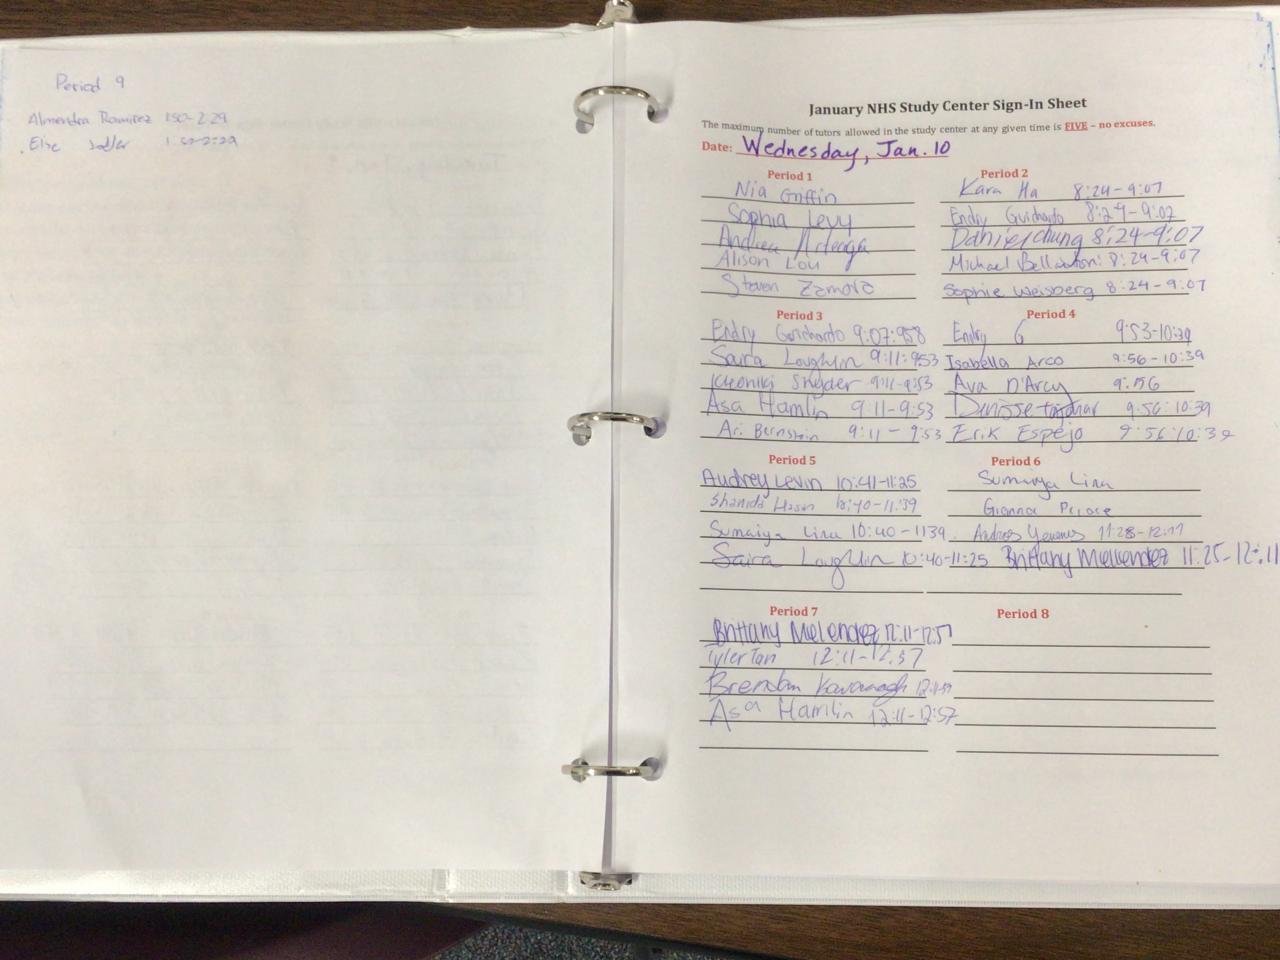 Period 9
Almendra Ramirez 1:50-2:29
Elise Sadler 1:50-2:29
January NHS Study Center Sign-In Sheet
The maximum number of tutors allowed in the study center at any given time is FIVE – no excuses.
Date: Wednesday, Jan. 10
Period 1
Nia Griffin
Sophia Levy
Andrea Arteaga
Alison Lou
Steven Zamora
Period 2
Kara Ha 8:24-9:07
Endry Guichardo 8:24-9:07
Daniel Chung 8:24-9:07
Michael 8:24-9:07
Sophie Weisberg 8:24-9:07
Period 3
Endry Guichardo 9:07:958
Saira Loughlin 9:11:953
Snyder 9:11-9:53
Asa Hamlin 9:11-9:53
Ari Bernstein 9:11-9:53
Period 4
Endry G 9:53-10:39
Isabella Arco 9:56-10:39
Ava D'Arcy 9:56
Denisse 9:56:10:39
Erik Espejo 9:56:10:39
Period 5
Audrey Levin 10:41-11:25
Hasan 10:40-11:39
Sumaiya Lina 10:40-1139
Saira Loughlin 10:40-11:25
Period 6
Sumaiya Lina
Gianna
11:28-12:11
Brittany Melendez 11:25-12:11
Period 7
Brittany Melendez 12:11-12:57
Tyler Tan 12:11-12:57
Brendan Kavanagh
Asa Hamlin 12:11-12:57
Period 8